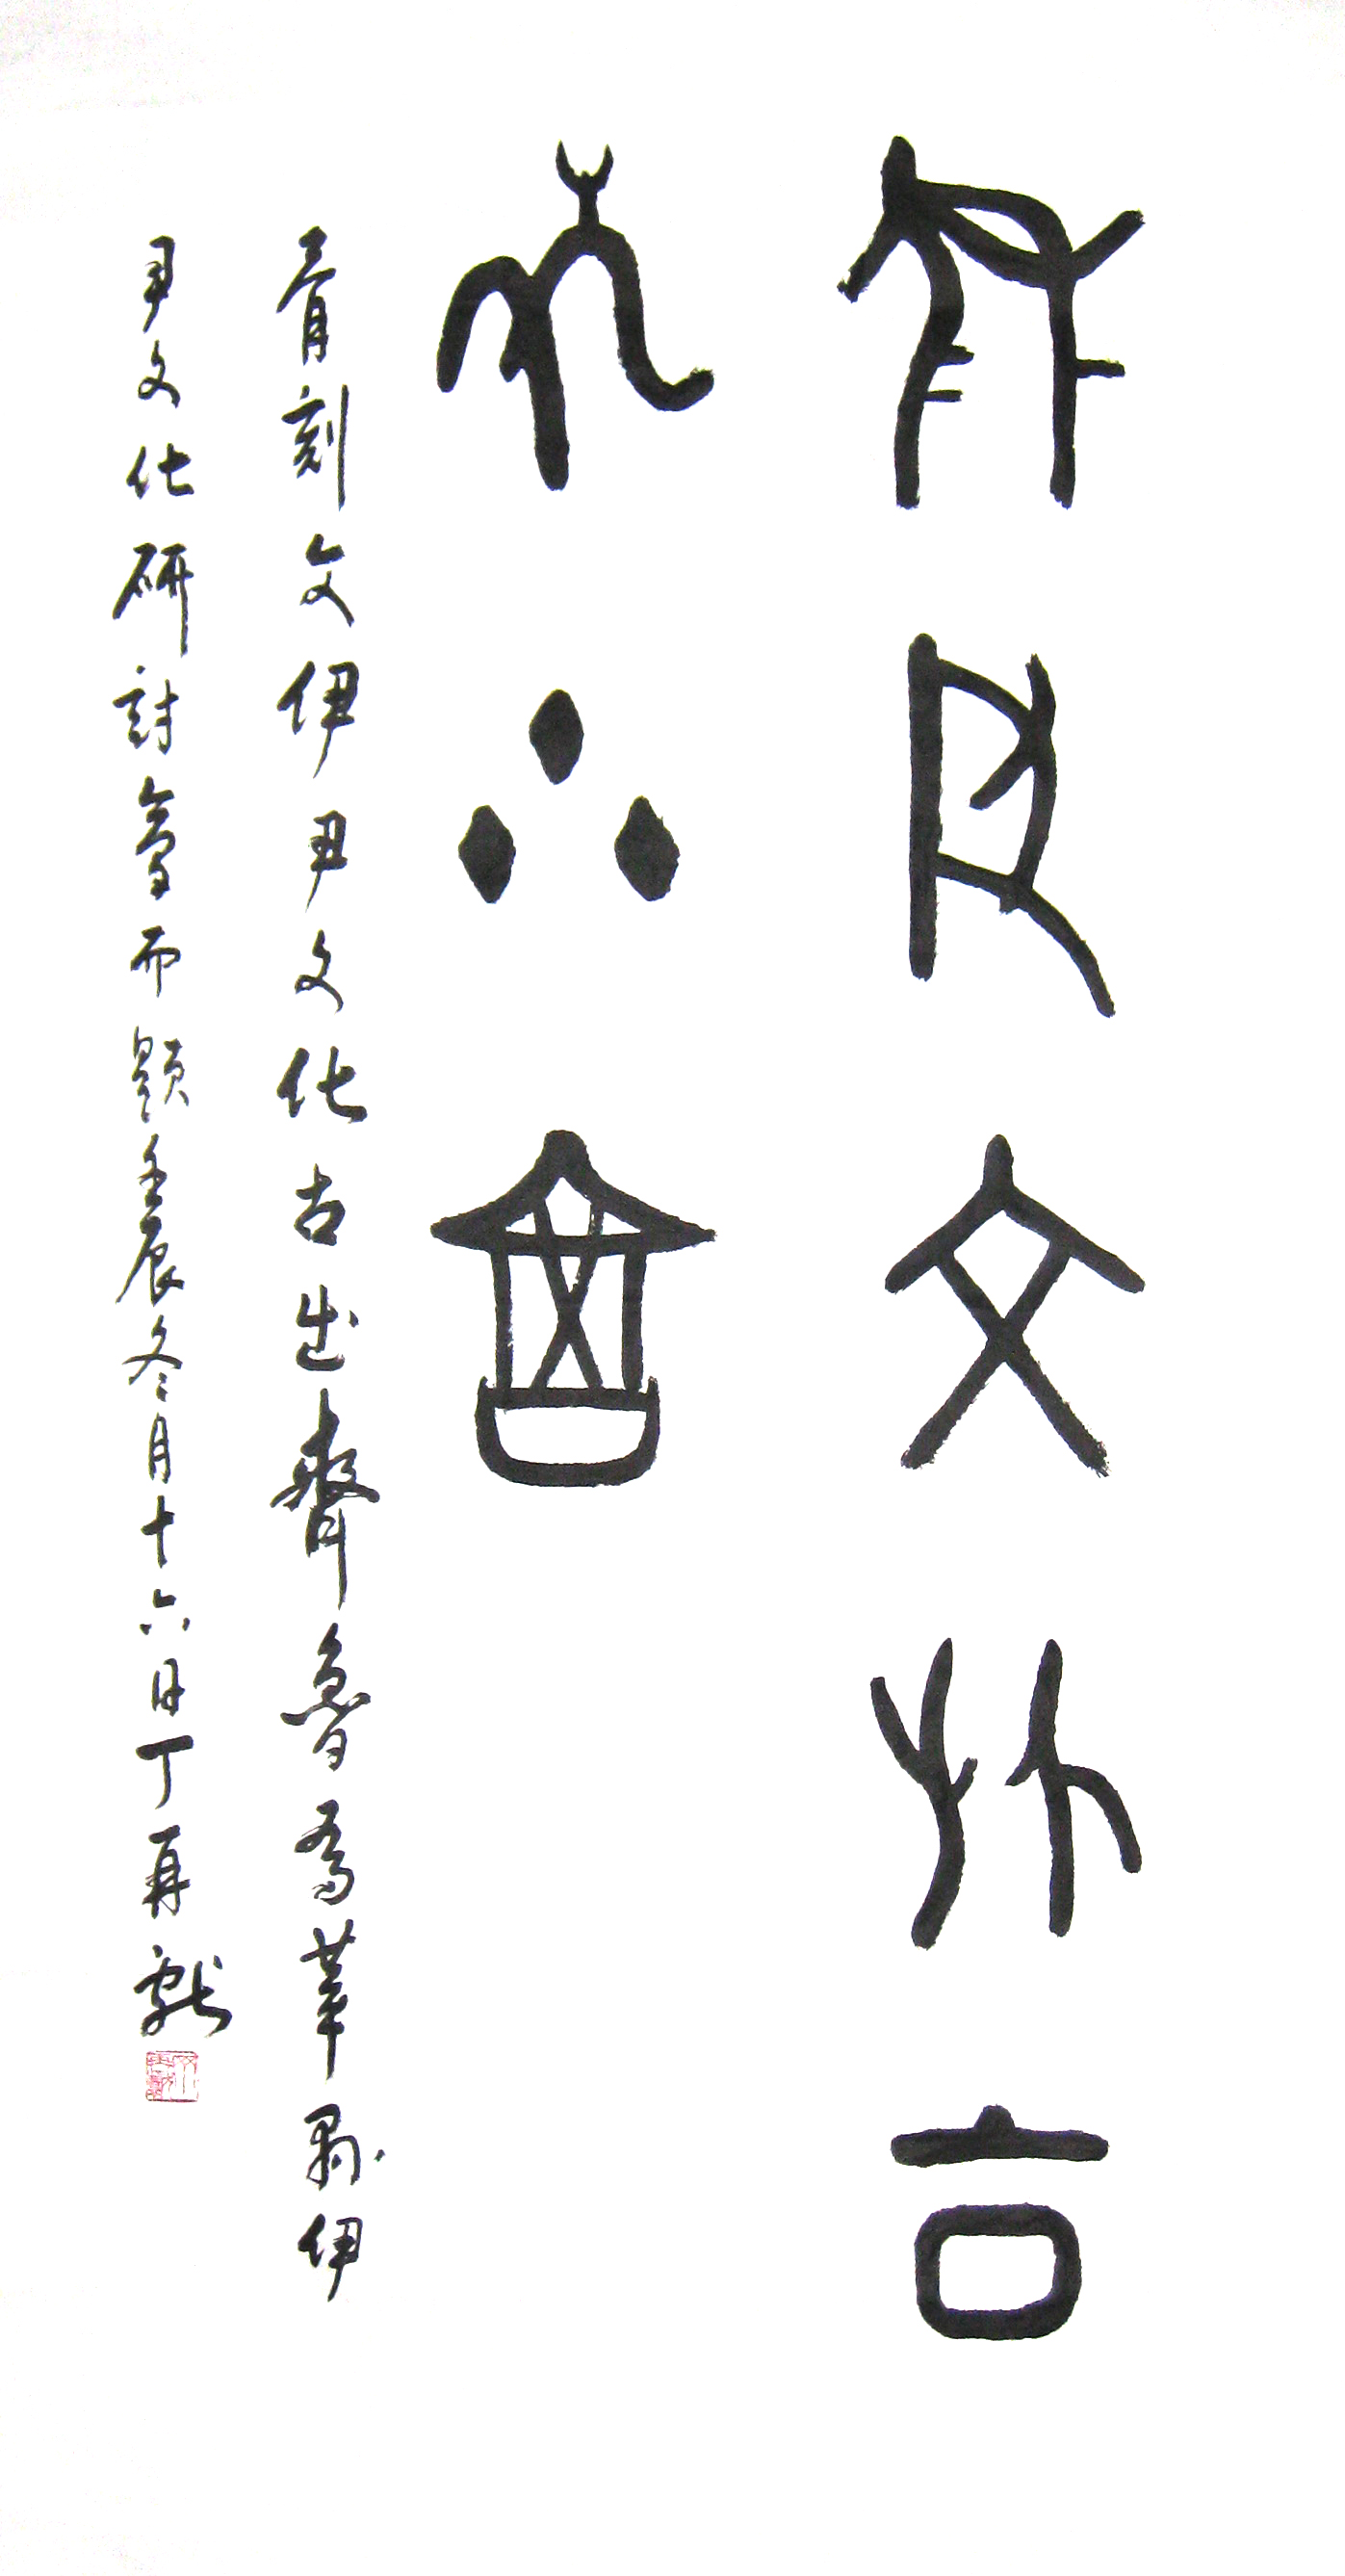 伊尹文化古
出齊魯
骨刻文伊尹文化古出齊魯為莘縣伊
尹文化研討會而題壬辰冬月十六日丁再獻